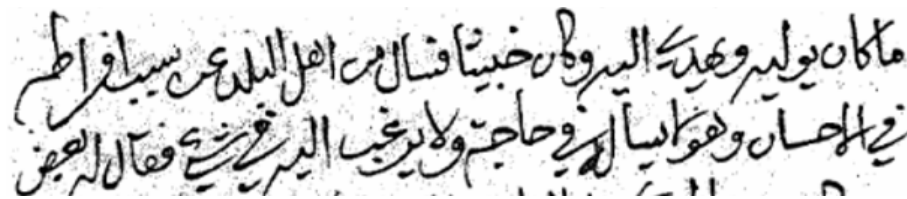 ما كان يوليه ويهديه اليه وكان خبيثا فسال من اهل البلد عن سبب افراطه
في الاحسان وهو لا يساله في حاجة ولا يرغب اليه في شيء فقال له بعض